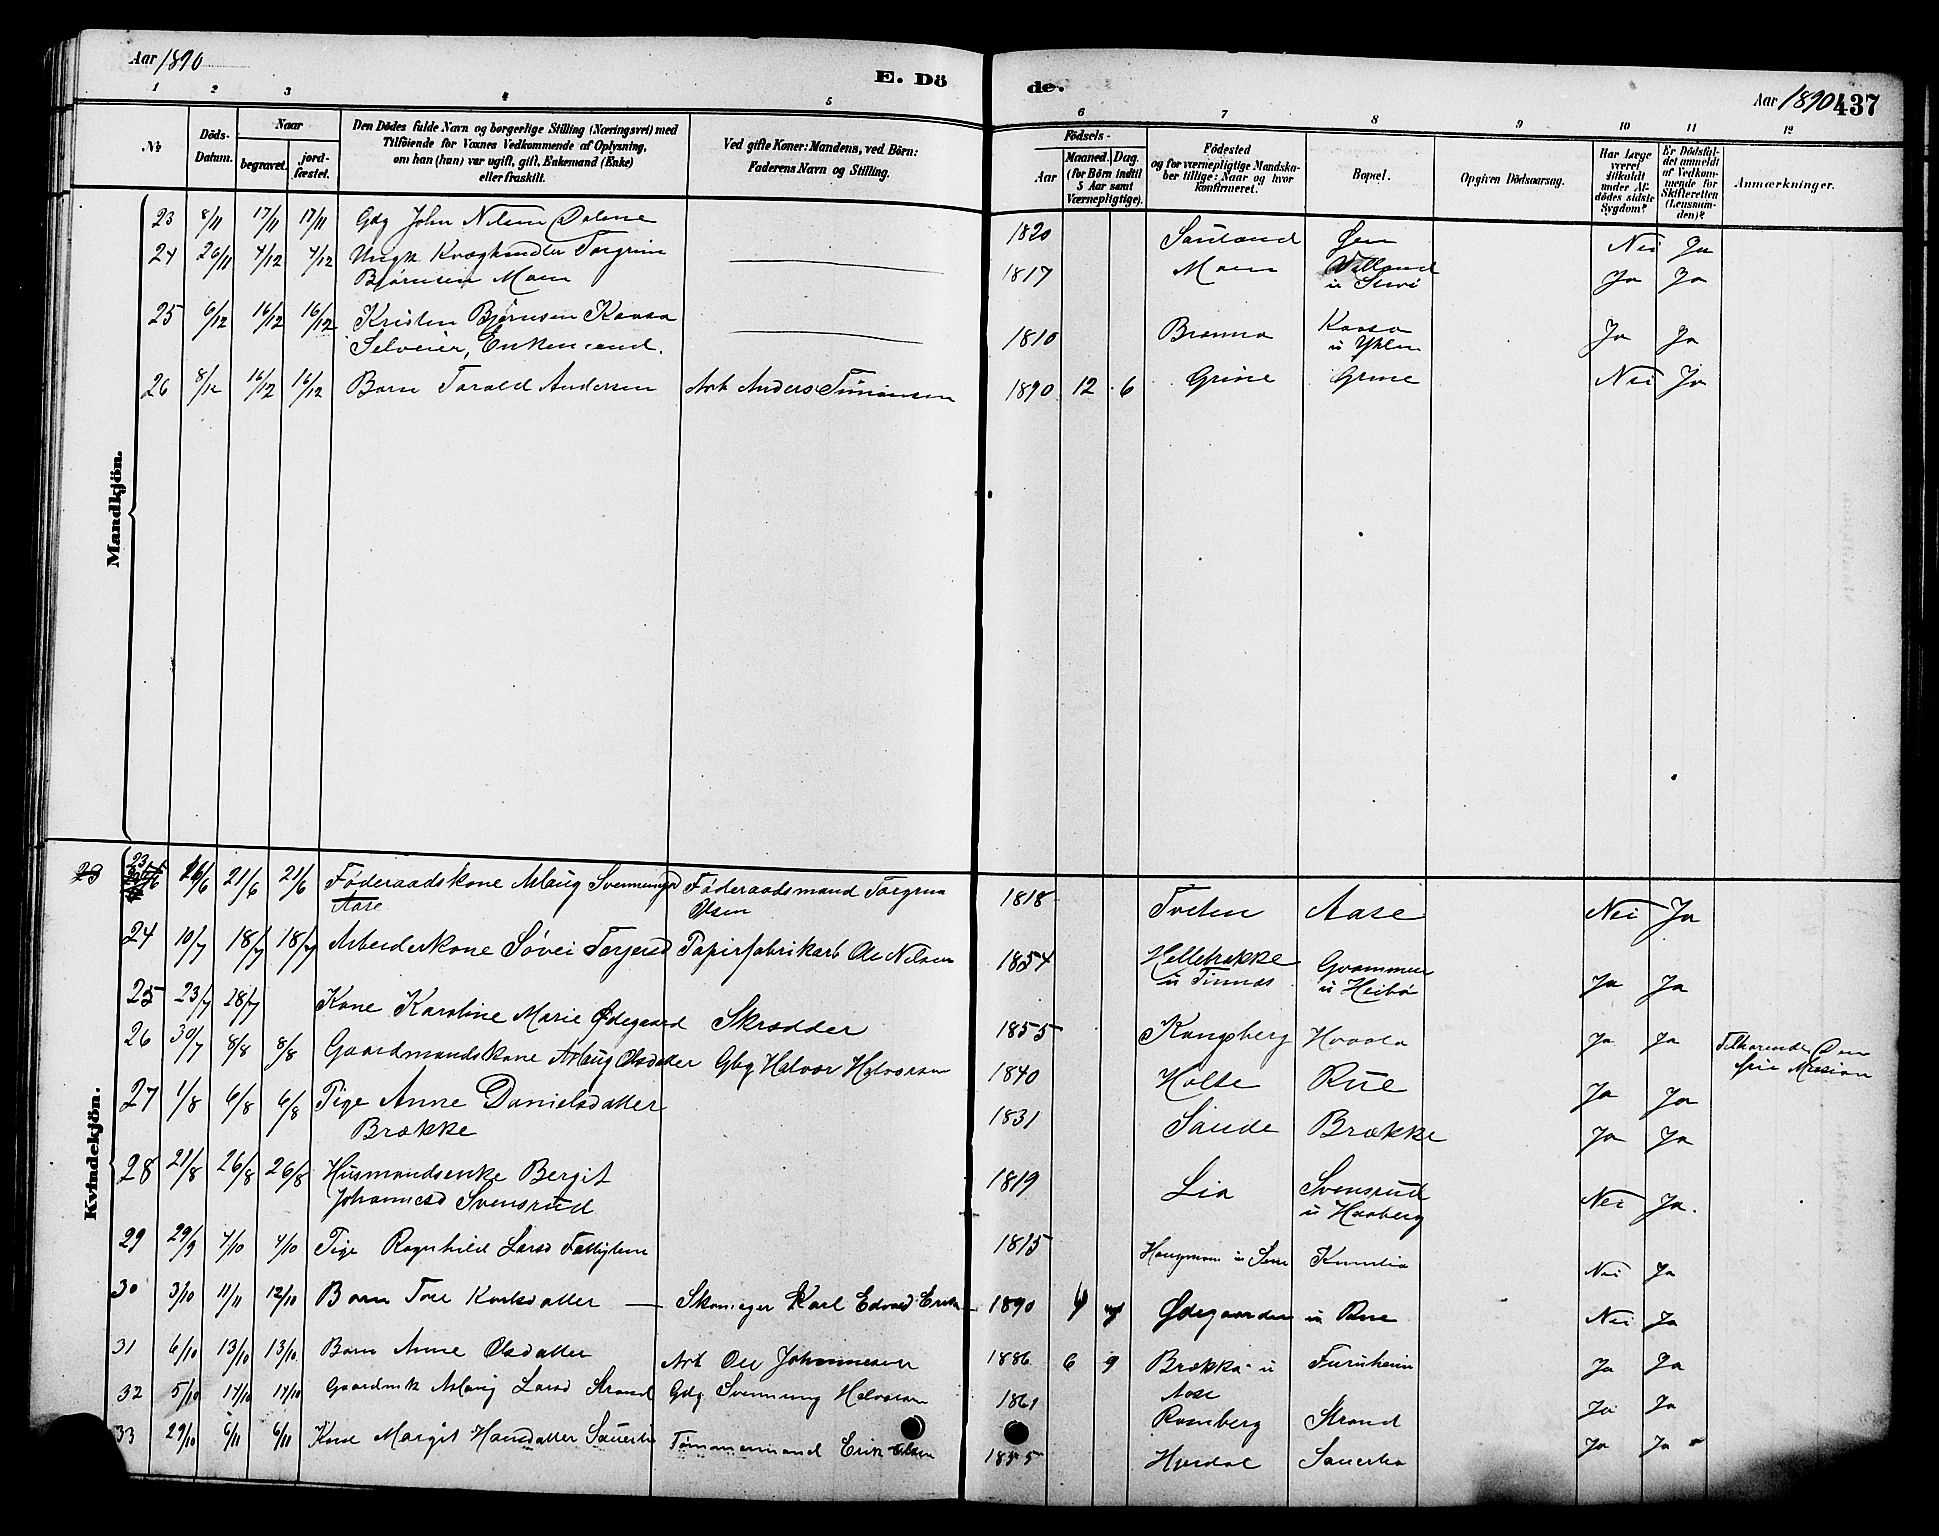 Aar 1890
E. Dö
de.
Aar 1890 437
1 2 3 4 5 6 7 8 9 10 11 12
№
Döds-
Datum.
Naar
begravet.
jord-
fæstet.
Den Dödes fulde Navn og borgerlige Stilling (Næringsvei) med
Tilföiende for Voxnes Vedkommende af Oplysning,
om han (hun) var ugift, gift, Enkemand (Enke)
eller fraskilt.
Ved gifte Koner: Mandens, ved Börn:
Faderens Navn og Stilling.
Födsels-
Aar
Maaned. Dag.
(for Börn indtil
5 Aar samt
Værnepligtige).
Födested
og for værnepligtige Mandska-
ber tillige: Naar og hvor
konfirmeret.
Bopæl.
Opgiven Dödsaarsag.
Har Læge
været
tilkaldt
under Af-
dödes sidste
Sygdom?
Er Dödsfal-
det anmeldt
af Vedkom-
mende for
Skifteretten
(Lensman-
den)?
Anmærkninger.
Mandkjön.
23 8/11 17/11 17/11 Gdg John Nilsen 1820 Sauland Nei Ja
24 26/11 4/12 4/12 Ungk Kvæghandler Torgrim
Bjørnsen Moen 1817 Moen Ja Ja
25 6/12 16/12 16/12 Kristen Bjørnsen Kaasa
Selveier, Enkemand. 1810 Kaasa
u Yhlen Ja Ja
26 8/12 16/12 16/12 Barn Tarald Andersen Arb Anders 1890 12 6 Grine Grine Nei Ja
Kvindekjön.
23 16/6 21/6 21/6 Føderaadskone Aslaug Svenningsd
Aase Føderaadsmand Torgrim
Olsen 1818 Tveten Aase Nei Ja
24 10/7 18/7 18/7 Arbeiderkone Søvei Torjersd Papirfabrikarb Ole Nilsen 1854 Hellebrække
u Tinnæs Grammen
u Heibø Ja Ja
25 23/7 28/7 Kone Karoline Marie Ødegaard Skrædder 1855 Kongsberg Hvaala Ja Ja Tilhørende Den
frie Mission
26 30/7 8/8 8/8 Gaardmandskone Aslaug Olsdatter Gbg Halvor Halvorsen 1840 Holte Rue Ja Ja
27 1/8 6/8 6/8 Pige Anne Danielsdatter
Brække 1831 Sande Brække Ja Ja
28 21/8 26/8 26/8 Husmandsenke Bergit
Johannesd Svensrud 1819 Lia Svensrud
u Haaberg Nei Ja.
29 29/9 4/10 4/10 Pige Ragnhild Larsd Fattiglem 1815 Nei Ja
30 3/10 11/11 12/10 Barn Tone Karlsdatter Karl Edvard 1890 Ødegaarden u Rue Nei Ja
31 6/10 13/10 13/10 Barn Anne Olsdatter Arb Ole Johannesen 1886 6 9 Brække u
Aase Furuheim Ja Ja
32 5/10 14/10 14/10 Gaardmk Aslaug Larsd Strand Gdg Svennung Halvorsen 1861 Romberg Strand Ja Ja
33 29/10 6/11 6/11 Kone Margit Hansdatter Sauerlia Tømmermand Erik Olsen 1855 Sauerlia Ja Ja